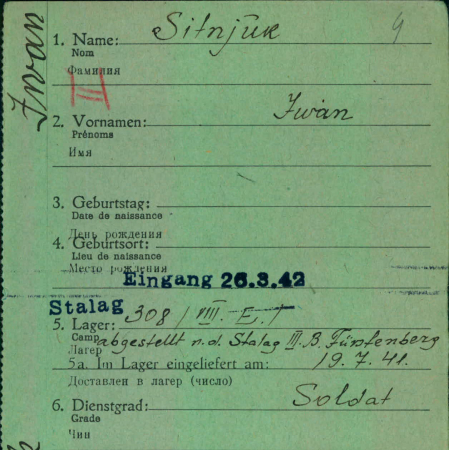 Iwan
1. Name: Sitnjuk
Nom
Фамилия
III
2. Vornamen: Iwan
Prénoms
Имя
3. Geburtstag:
Date de naissance
День рождения
4. Geburtsort:
Lieu de naissance
Место рождения
Eingang 26.3.42
Stalag
5. Lager: 308 / VIII. E. /
Camp abgestellt n. d. Stalag III. B. Fürstenberg
Лагерь
5a. Im Lager eingeliefert am: 19. 7. 41.
Доставлен в лагерь (число)
6. Dienstgrad: Soldat
Grade
Чин